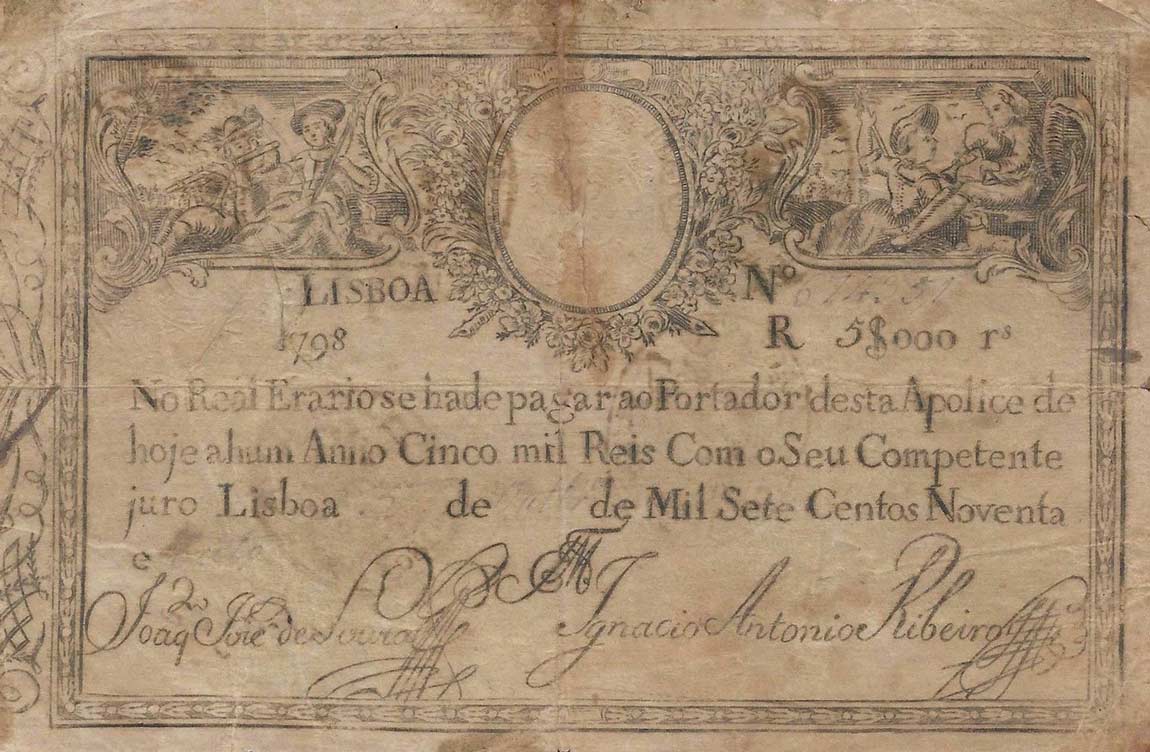 LISBOA Nº
1798 R 5$000 rˢ
No Real Erario se hade pagar ao Portador desta Apolice de
hoje a hum Anno Cinco mil Reis Com o Seu Competente
juro Lisboa de de Mil Sete Centos Noventa
e
Joaqᵐ Joze de Souza Ignacio Antonio Ribeiro